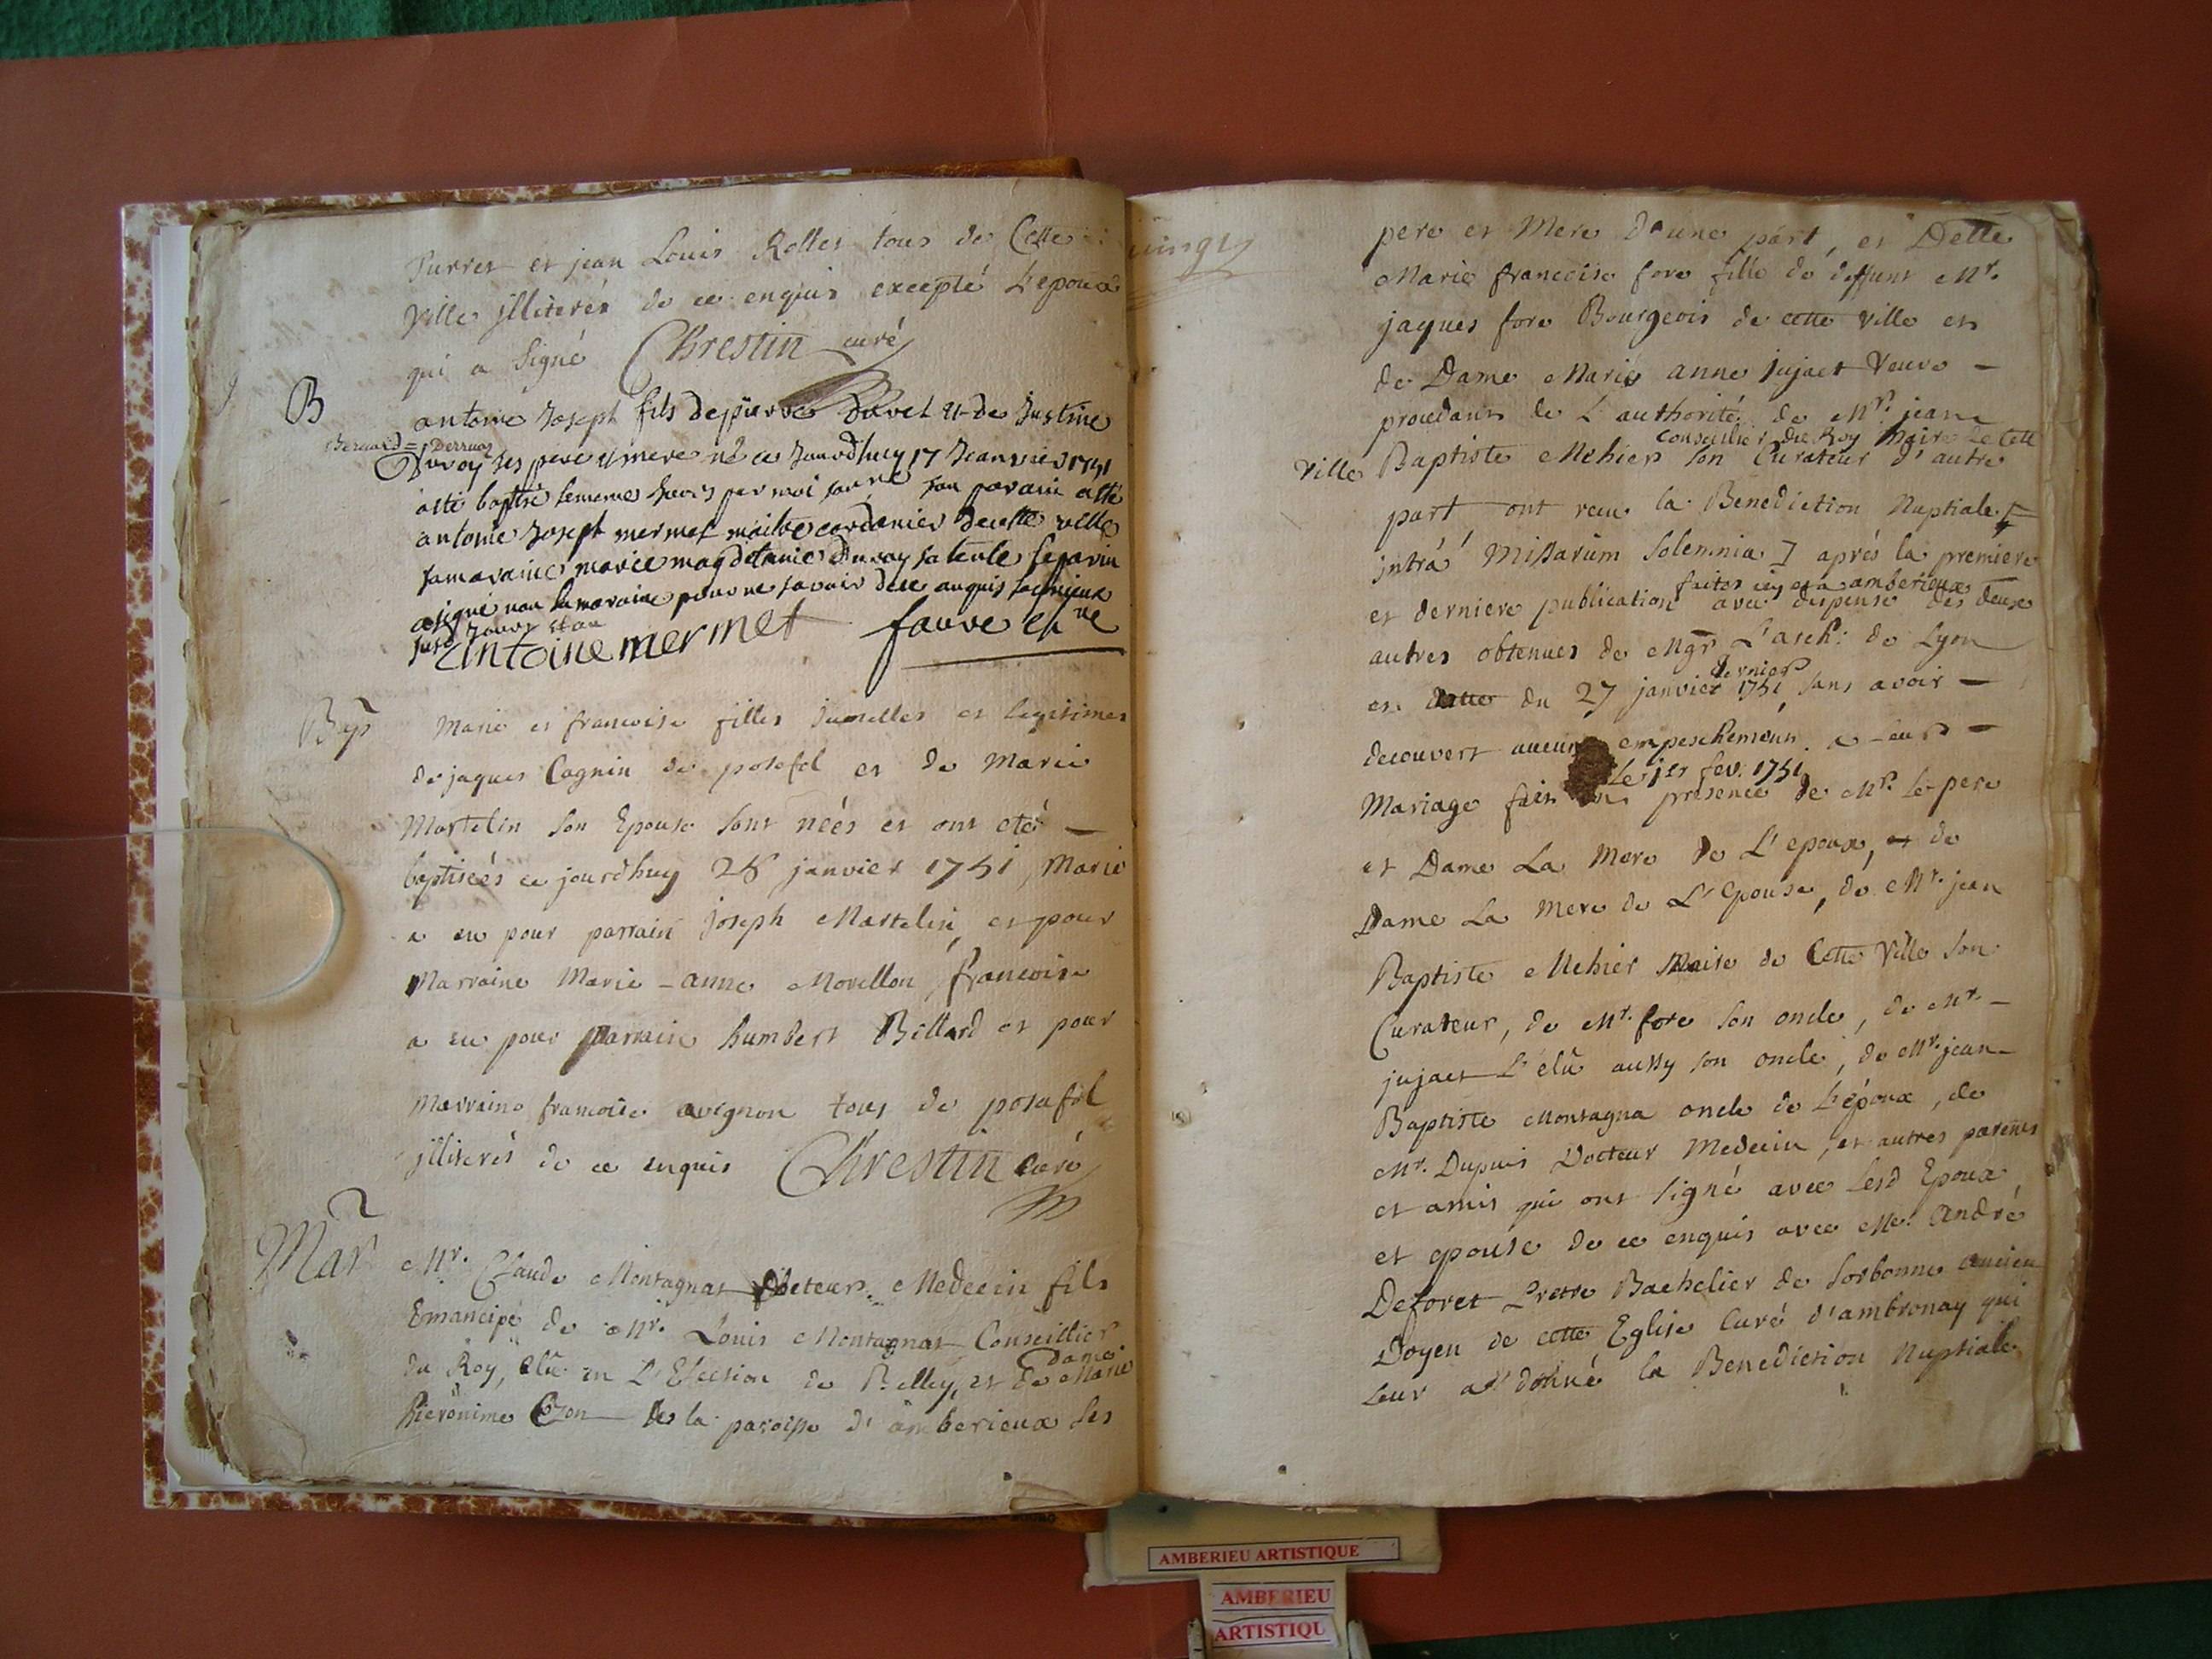 Purret et jean Louis Rollet tous de Cette
ville jlliterés de ce enquis excepté L'epoux
qui a signé Chrestin curé
B
antoine Joseph fils de pierre Favel et de Justine
Bernard = Derruas
Durroy ses pere et mere né ce Jourdhuy 17 Jeanvier 1751
a été baptisé le meme Jours par moi son parain a été
antoine Joseph mermet maitre cordonier de cette ville
sa maraine marie magdelaine Durray sa tente le parin
a signé non la maraine pour ne savoir de ce enquis
Antoine mermet fauve
Bap
Marie et francoise filles jumelles et legitimes
de jaques Cagnin de posafol et de Marie
Martelin son Epouse sont néés et ont eté
baptiséés ce jourdhuy 28 janvier 1751, Marie
a eu pour parrain joseph Martelin, et pour
Marraine Marie-anne Morellon, francoise
a eu pour parrain humbert Billard et pour
Marraine francoise avignon tous de posafol
jlliterés de ce enquis Chrestin Curé
Mar
Mr. Claude Montagnat Docteur Medecin fils
Emancipé de Mr. Louis Montagnat Conseillier
du Roy, elû en L'Election de Belley, et de dame Marie
hieronime Cozon de la paroisse d'amberieux ses
pere et Mere d'une part, et Delle
Marie francoise fore fille de deffunt Mr.
jaques fore Bourgeois de cette ville et
de Dame Marie anne jujact Veuve
procedant de L'authorité de Mr. jean
Conseillier du Roy Maire de cette
ville Baptiste Mehier son Curateur d'autre
part ont reçu la Benediction Nuptiale
jntrá Missarùm Solemnia aprés la premiere
faites icy et a amberieux
et derniere publication avec dispense des deux
autres obtenues de Mgr L'arch: de Lyon
dernier
en datte du 27 janvier 1751 sans avoir
decouvert aucun empeschement
Le 1er fev. 1751
Mariage fait en presence de Mr. le pere
et Dame La Mere de L'epoux, et de
Dame La Mere de L'Epouse, de Mr. jean
Baptiste Mehier Maire de Cette Ville son
Curateur, de Mr. fore son oncle, de Mr.
jujact L'élû aussy son oncle, de Mr. jean
Baptiste Montagna oncle de L'époux, de
Mr. Dupuis Docteur Medecin, et autres parents
et amis qui ont signé avec Lesd Epoux
et epouse de ce enquis avec Me. André
Deforet Pretre Bachelier de Sorbonne ancien
Doyen de cette Eglise Curé d'ambronay qui
Leur a donné la Benediction Nuptiale
AMBERIEU ARTISTIQUE
AMBERIEU
ARTISTIQU